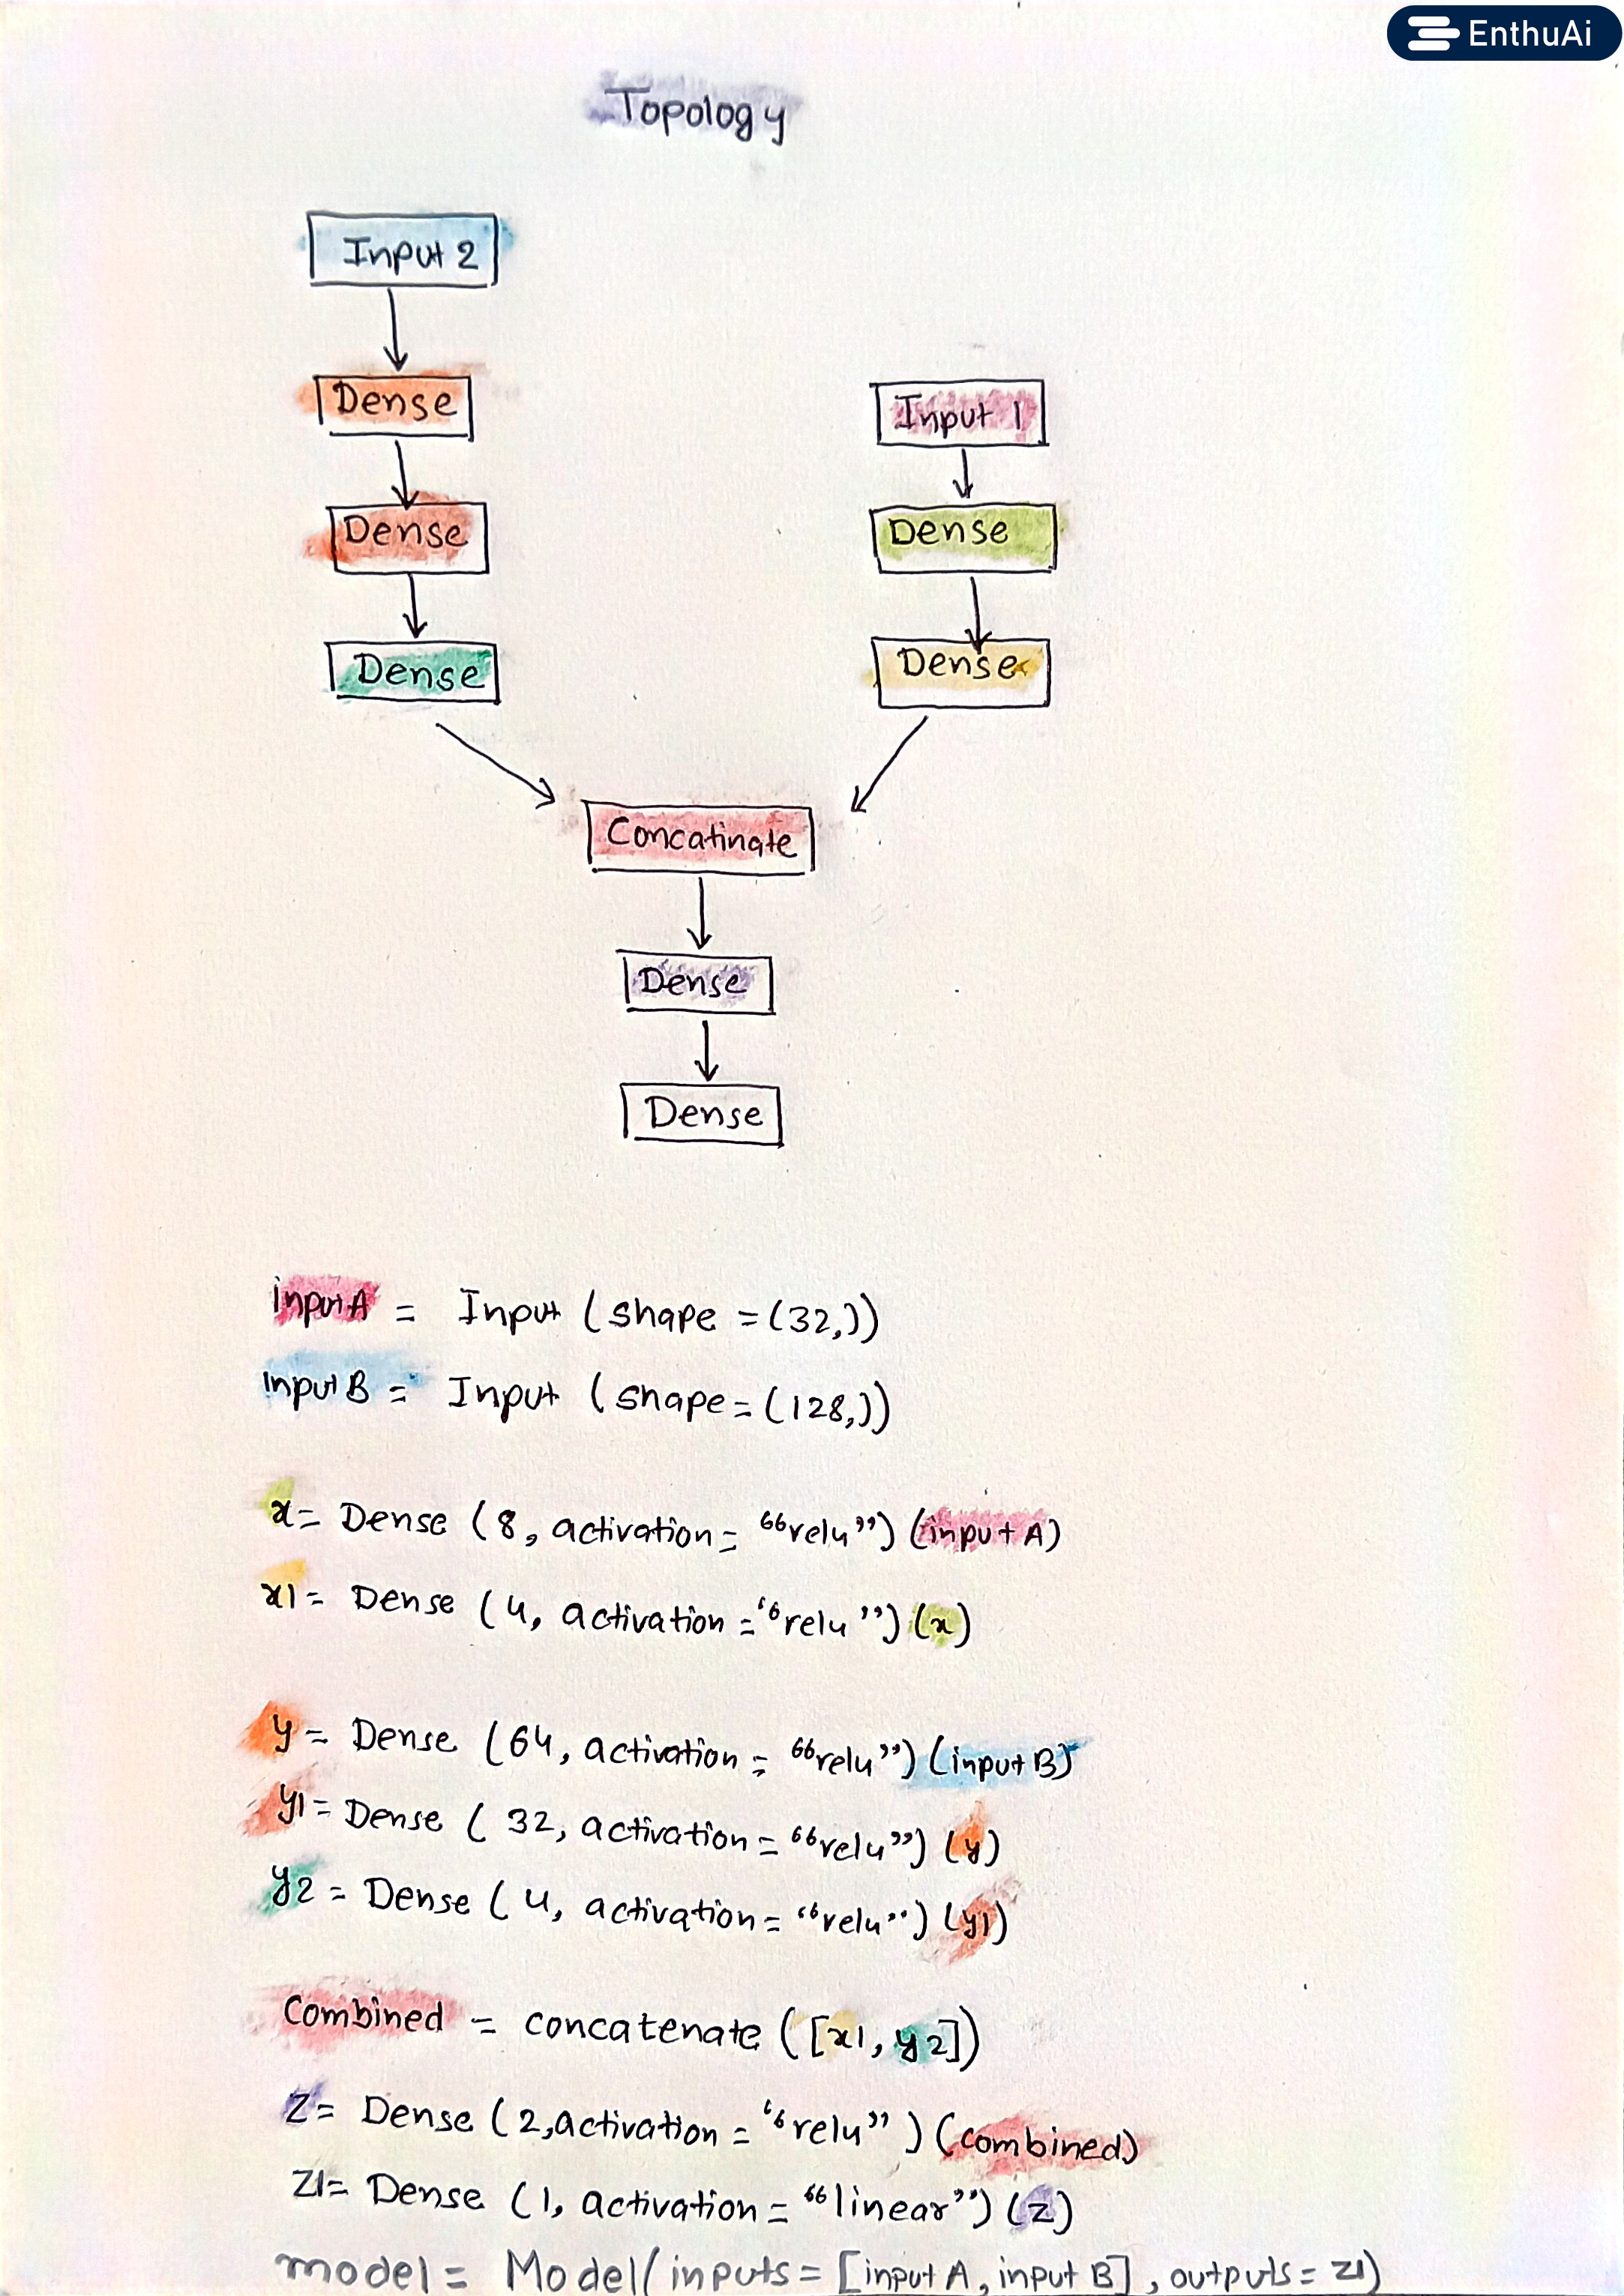 EnthuAi
Topology
Input 2
Dense
Input 1
Dense
Dense
Dense
Dense
Concatinate
Dense
Dense
inputA = Input (shape =(32,))
inputB = Input (shape=(128,))
x= Dense (8, activation= “relu”) (input A)
x1= Dense (4, activation =“relu”) (x)
y= Dense (64, activation = “relu”) (input B)
y1= Dense ( 32, activation = “relu”) (y)
y2 = Dense ( 4, activation = “relu”) (y1)
Combined = concatenate ([x1, y2])
Z= Dense (2,activation = “relu” ) (combined)
Z1= Dense (1, activation = “linear”) (z)
model= Model(inputs = [input A, input B], outputs= z1)